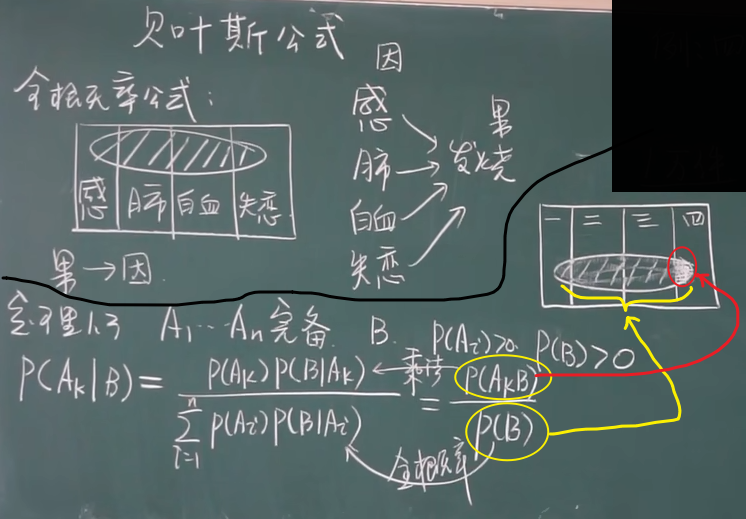 贝叶斯公式
全概率公式:
感 肺 白血 失恋
因
感
肺
白血
失恋
果
发烧
果→因
一 二 三 四
定理1.3 A₁…Aₙ完备. B. P(Aᵢ)>0. P(B)>0
P(Aₖ|B) = P(Aₖ)P(B|Aₖ) / ∑ᵢ₌₁ⁿ P(Aᵢ)P(B|Aᵢ) = P(AₖB) / P(B)
乘法
全概率